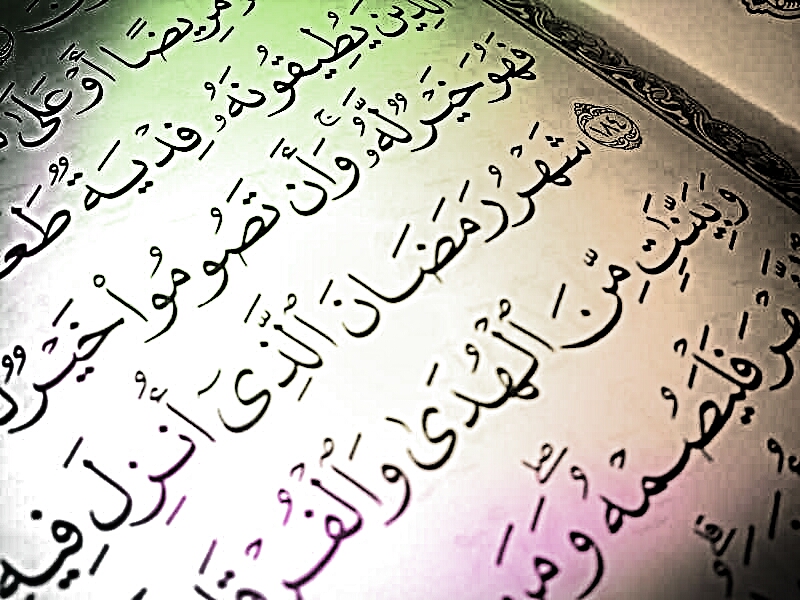 مَّرِيضًا أَوْ عَلَىٰ
ٱلَّذِينَ يُطِيقُونَهُۥ فِدْيَةٌ طَعَ
فَهُوَ خَيْرٌ لَّهُۥ ۚ وَأَن تَصُومُوا۟ خَيْرٌ
١٨٤ شَهْرُ رَمَضَانَ ٱلَّذِىٓ أُنزِلَ فِيهِ
وَبَيِّنَـٰتٍ مِّنَ ٱلْهُدَىٰ وَٱلْفُرْقَا
فَلْيَصُمْهُ ۖ وَمَن